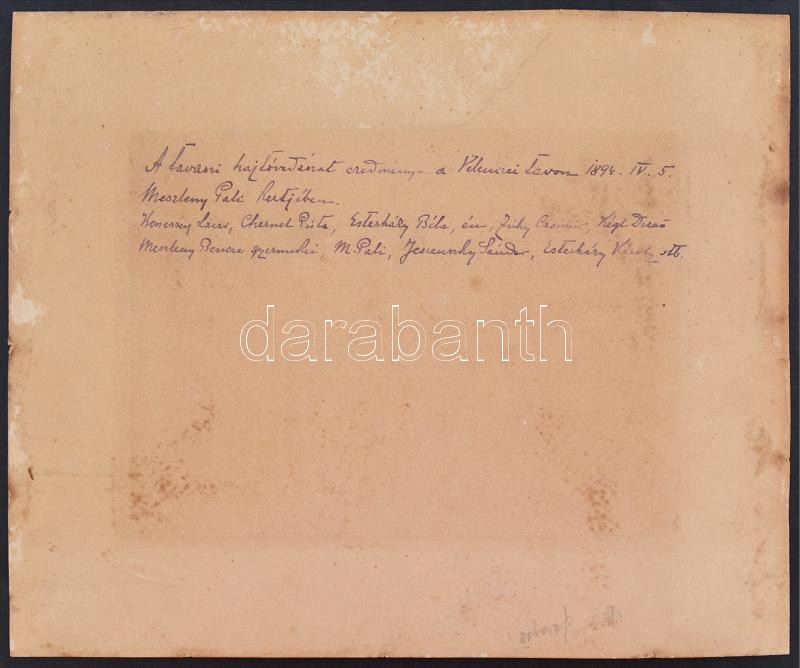 A tavaszi hajtóvadászat eredménye a Velenczei tavon 1894. IV. 5.
Meszleny Pali kertjében.
Kenessey Laczi, Chernel Pista, Esterházy Béla, én, Zichy Casimir, Végl Dezső
Meszleny Bencze gyermekei, M. Pali, Jeszenszky Sándor, Esterházy Károly stb.
darabanth